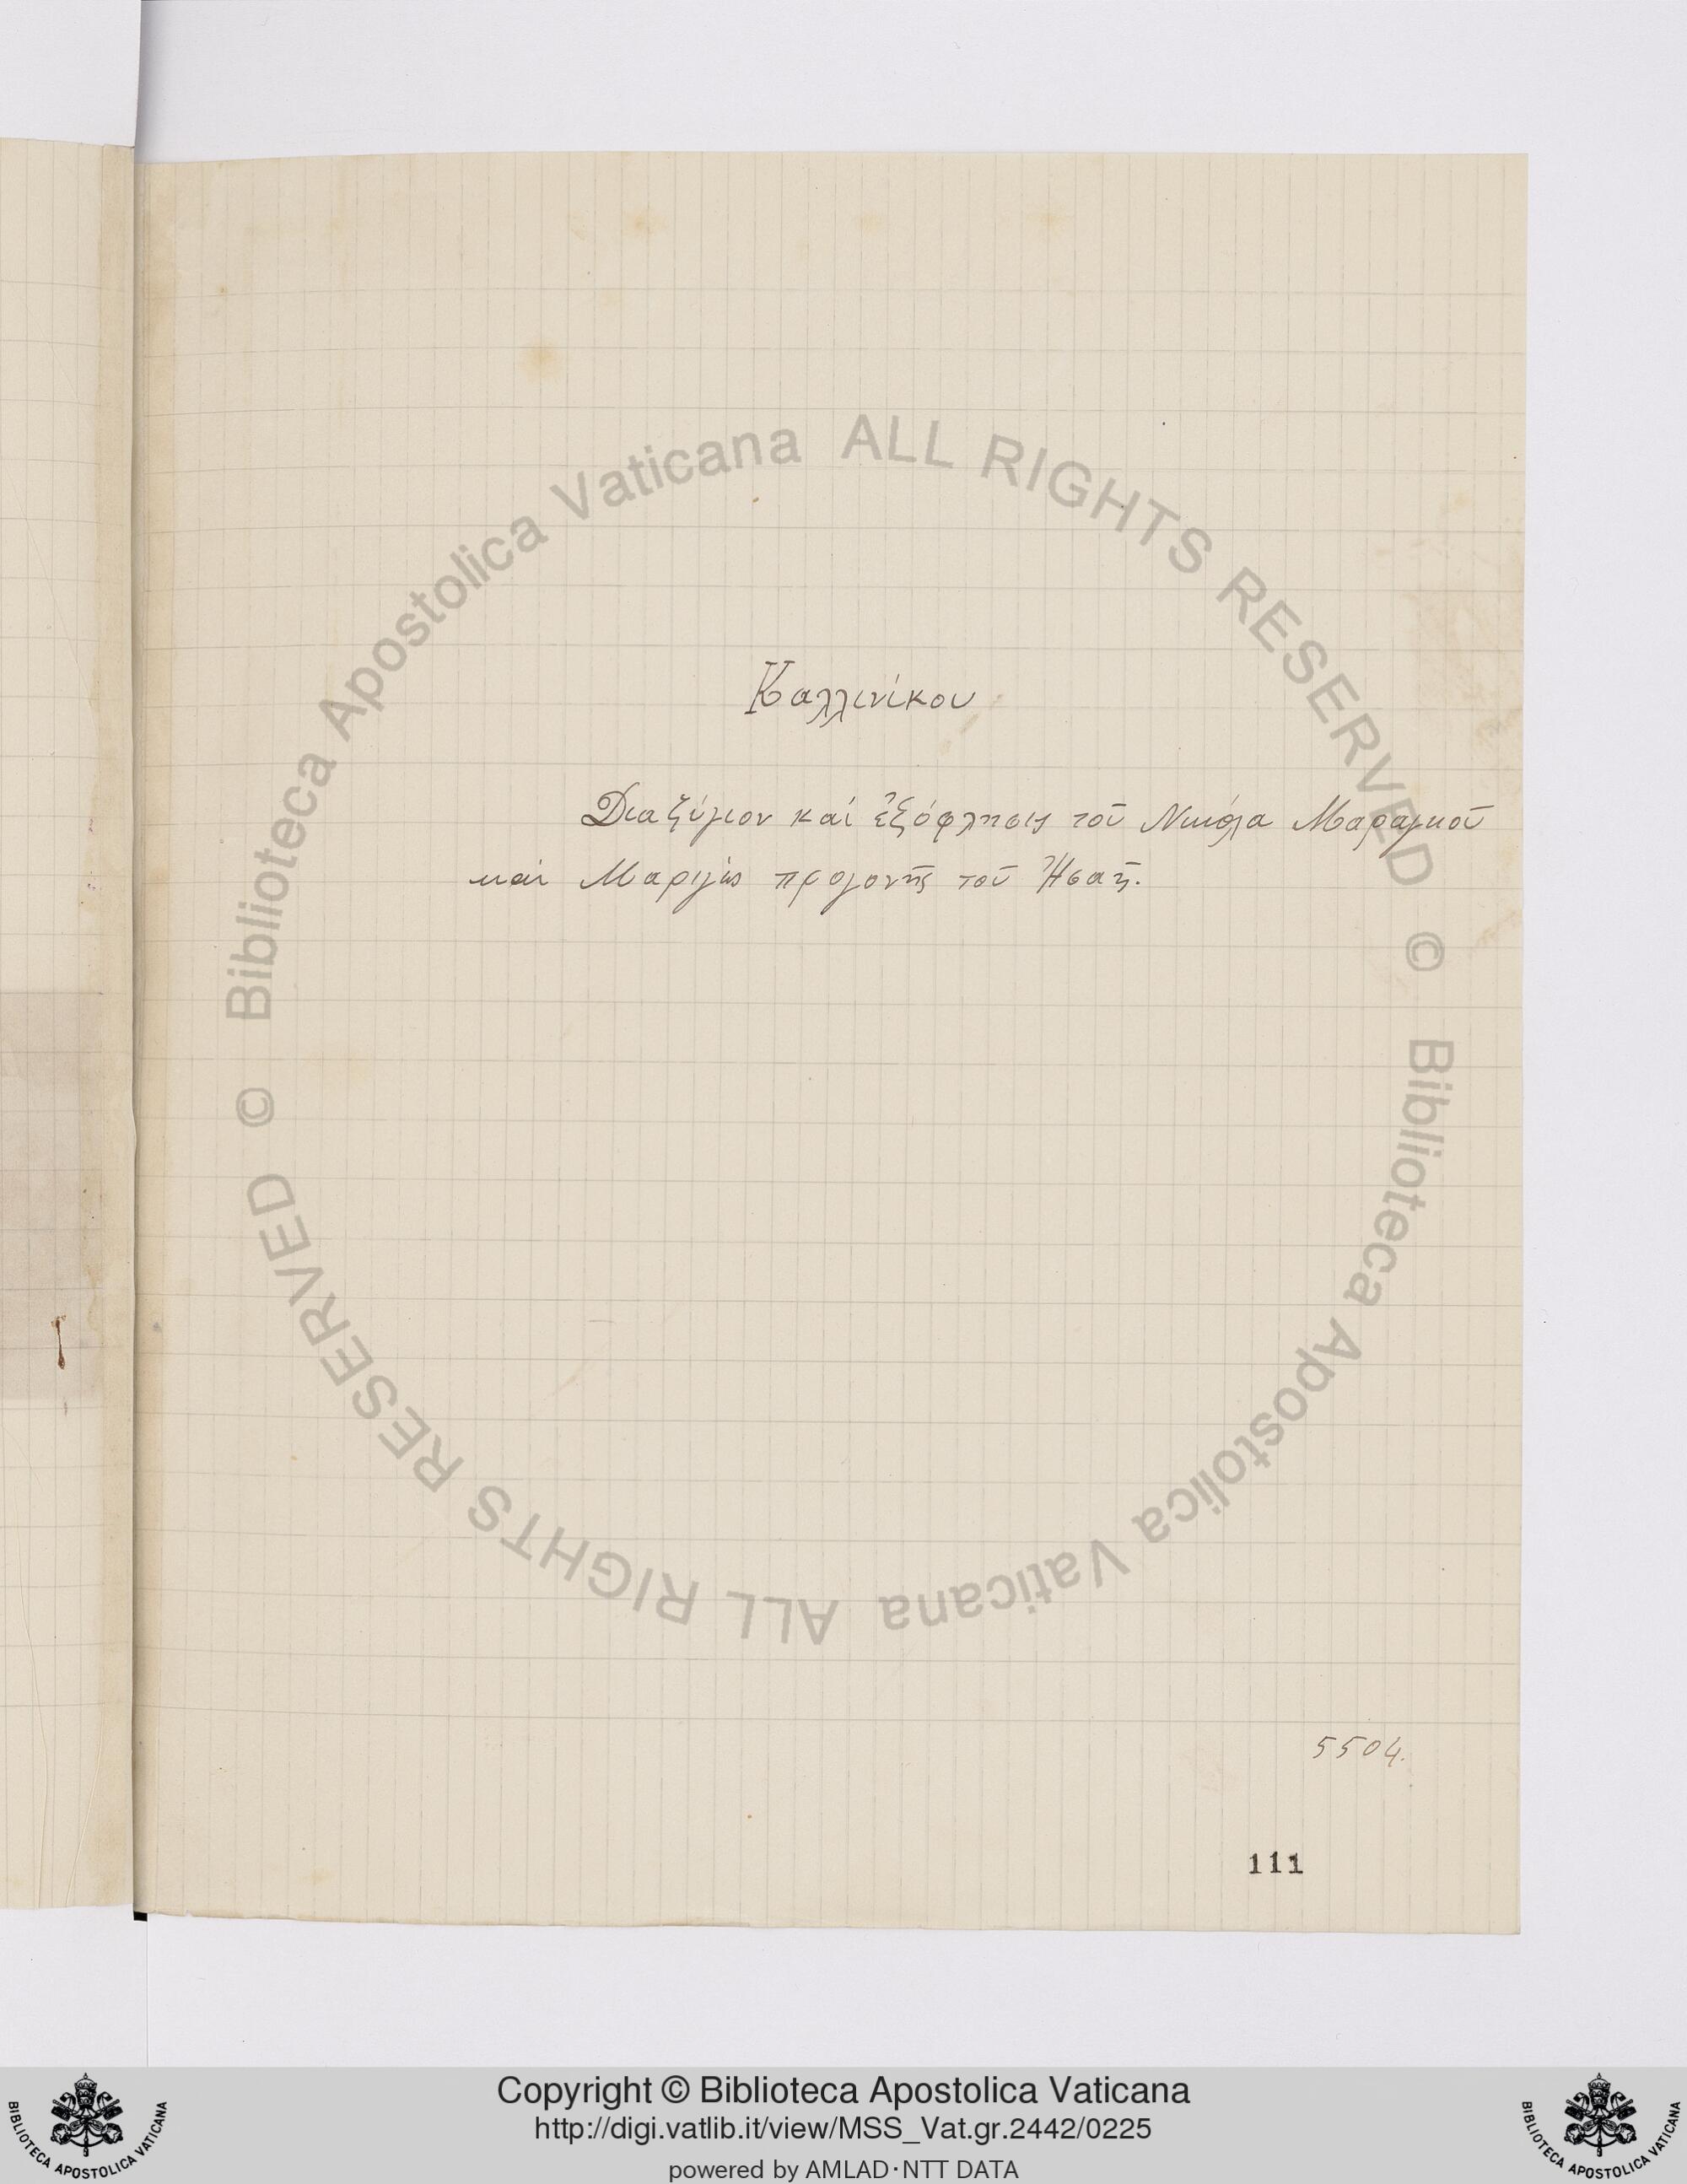 Καλλινίκου
Διαζύγιον καί ἐξόφλησις τοῦ Νικόλα Μαραγκοῦ
καί Μαριγῶς προγονῆς τοῦ Ἠσαῆ.
5504.
111
© Biblioteca Apostolica Vaticana ALL RIGHTS RESERVED
© Biblioteca Apostolica Vaticana ALL RIGHTS RESERVED
Copyright © Biblioteca Apostolica Vaticana
http://digi.vatlib.it/view/MSS_Vat.gr.2442/0225
powered by AMLAD·NTT DATA
BIBLIOTECA APOSTOLICA VATICANA
BIBLIOTECA APOSTOLICA VATICANA